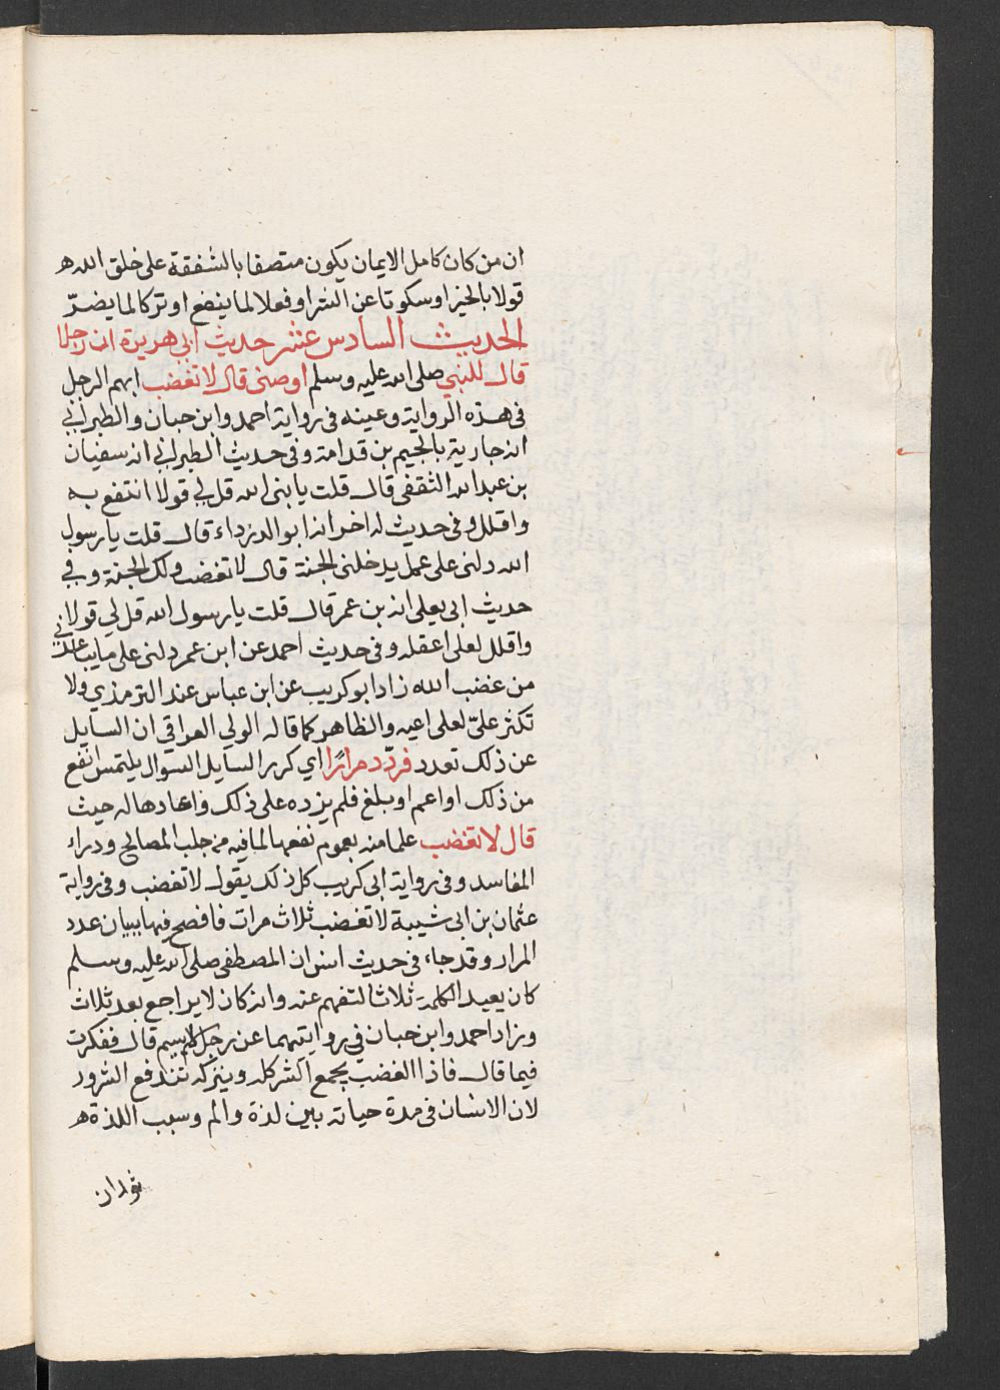 ان من كان كامل الايمان يكون متصفا بالشفقة على خلق الله ه
قولا بالخير او سكوتا عن الشر او فعلا لما ينفع او تركا لما يضرّ
الحديث السادس عشر حديث ابي هريرة ان رجلا
قال للنبي صلى الله عليه وسلم اوصني قال لا تغضب ابهم الرجل
في هذه الرواية وعينه في رواية احمد وابن حبان والطبراني
انه جارية بالجيم بن قدامة وفي حديث الطبراني انه سفيان
بن عبد الله الثقفي قال قلت يا نبي الله قل لي قولا انتفع به
واقلل وفي حديث له اخر انه ابو الدرداء قال قلت يا رسول
الله دلني على عمل يدخلني الجنة قال لا تغضب ولك الجنة وفي
حديث ابي يعلى انه بن عمر قال قلت يا رسول الله قل لي قولا
واقلل لعلي اعقله وفي حديث احمد عن ابن عمر دلني على ما يباعدني
من غضب الله زاد ابو كريب عن ابن عباس عند الترمذي ولا
تكثر عليّ لعلي اعيه والظاهر كما قاله الولي العراقي ان السايل
عن ذلك تعدد فردّد مرارًا اي كرر السايل السوال يلتمس انفع
من ذلك او اعم او بلغ فلم يزده على ذلك واعادها له حيث
قال لا تغضب علما منه بعموم نفعها لما فيه من جلب المصالح ودراء
المفاسد وفي رواية ابي كريب كل ذلك يقول لا تغضب وفي رواية
عثمان بن ابي شيبة لا تغضب ثلاث مرات فافصح فيها ببيان عدد
المرار وقد جاء في حديث انس ان المصطفى صلى الله عليه وسلم
كان يعيد الكلمة ثلاثا لتفهم عنه وانه كان لا يراجع بعد ثلاث
وزاد احمد وابن حبان في روايتهما عن رجل لم يسم قال ففكرت
فيما قال فاذا الغضب يجمع الشر كله وبتركه تندفع الشرور
لان الانسان في مدة حياته بين لذة والم وسبب اللذة ه
ثوران